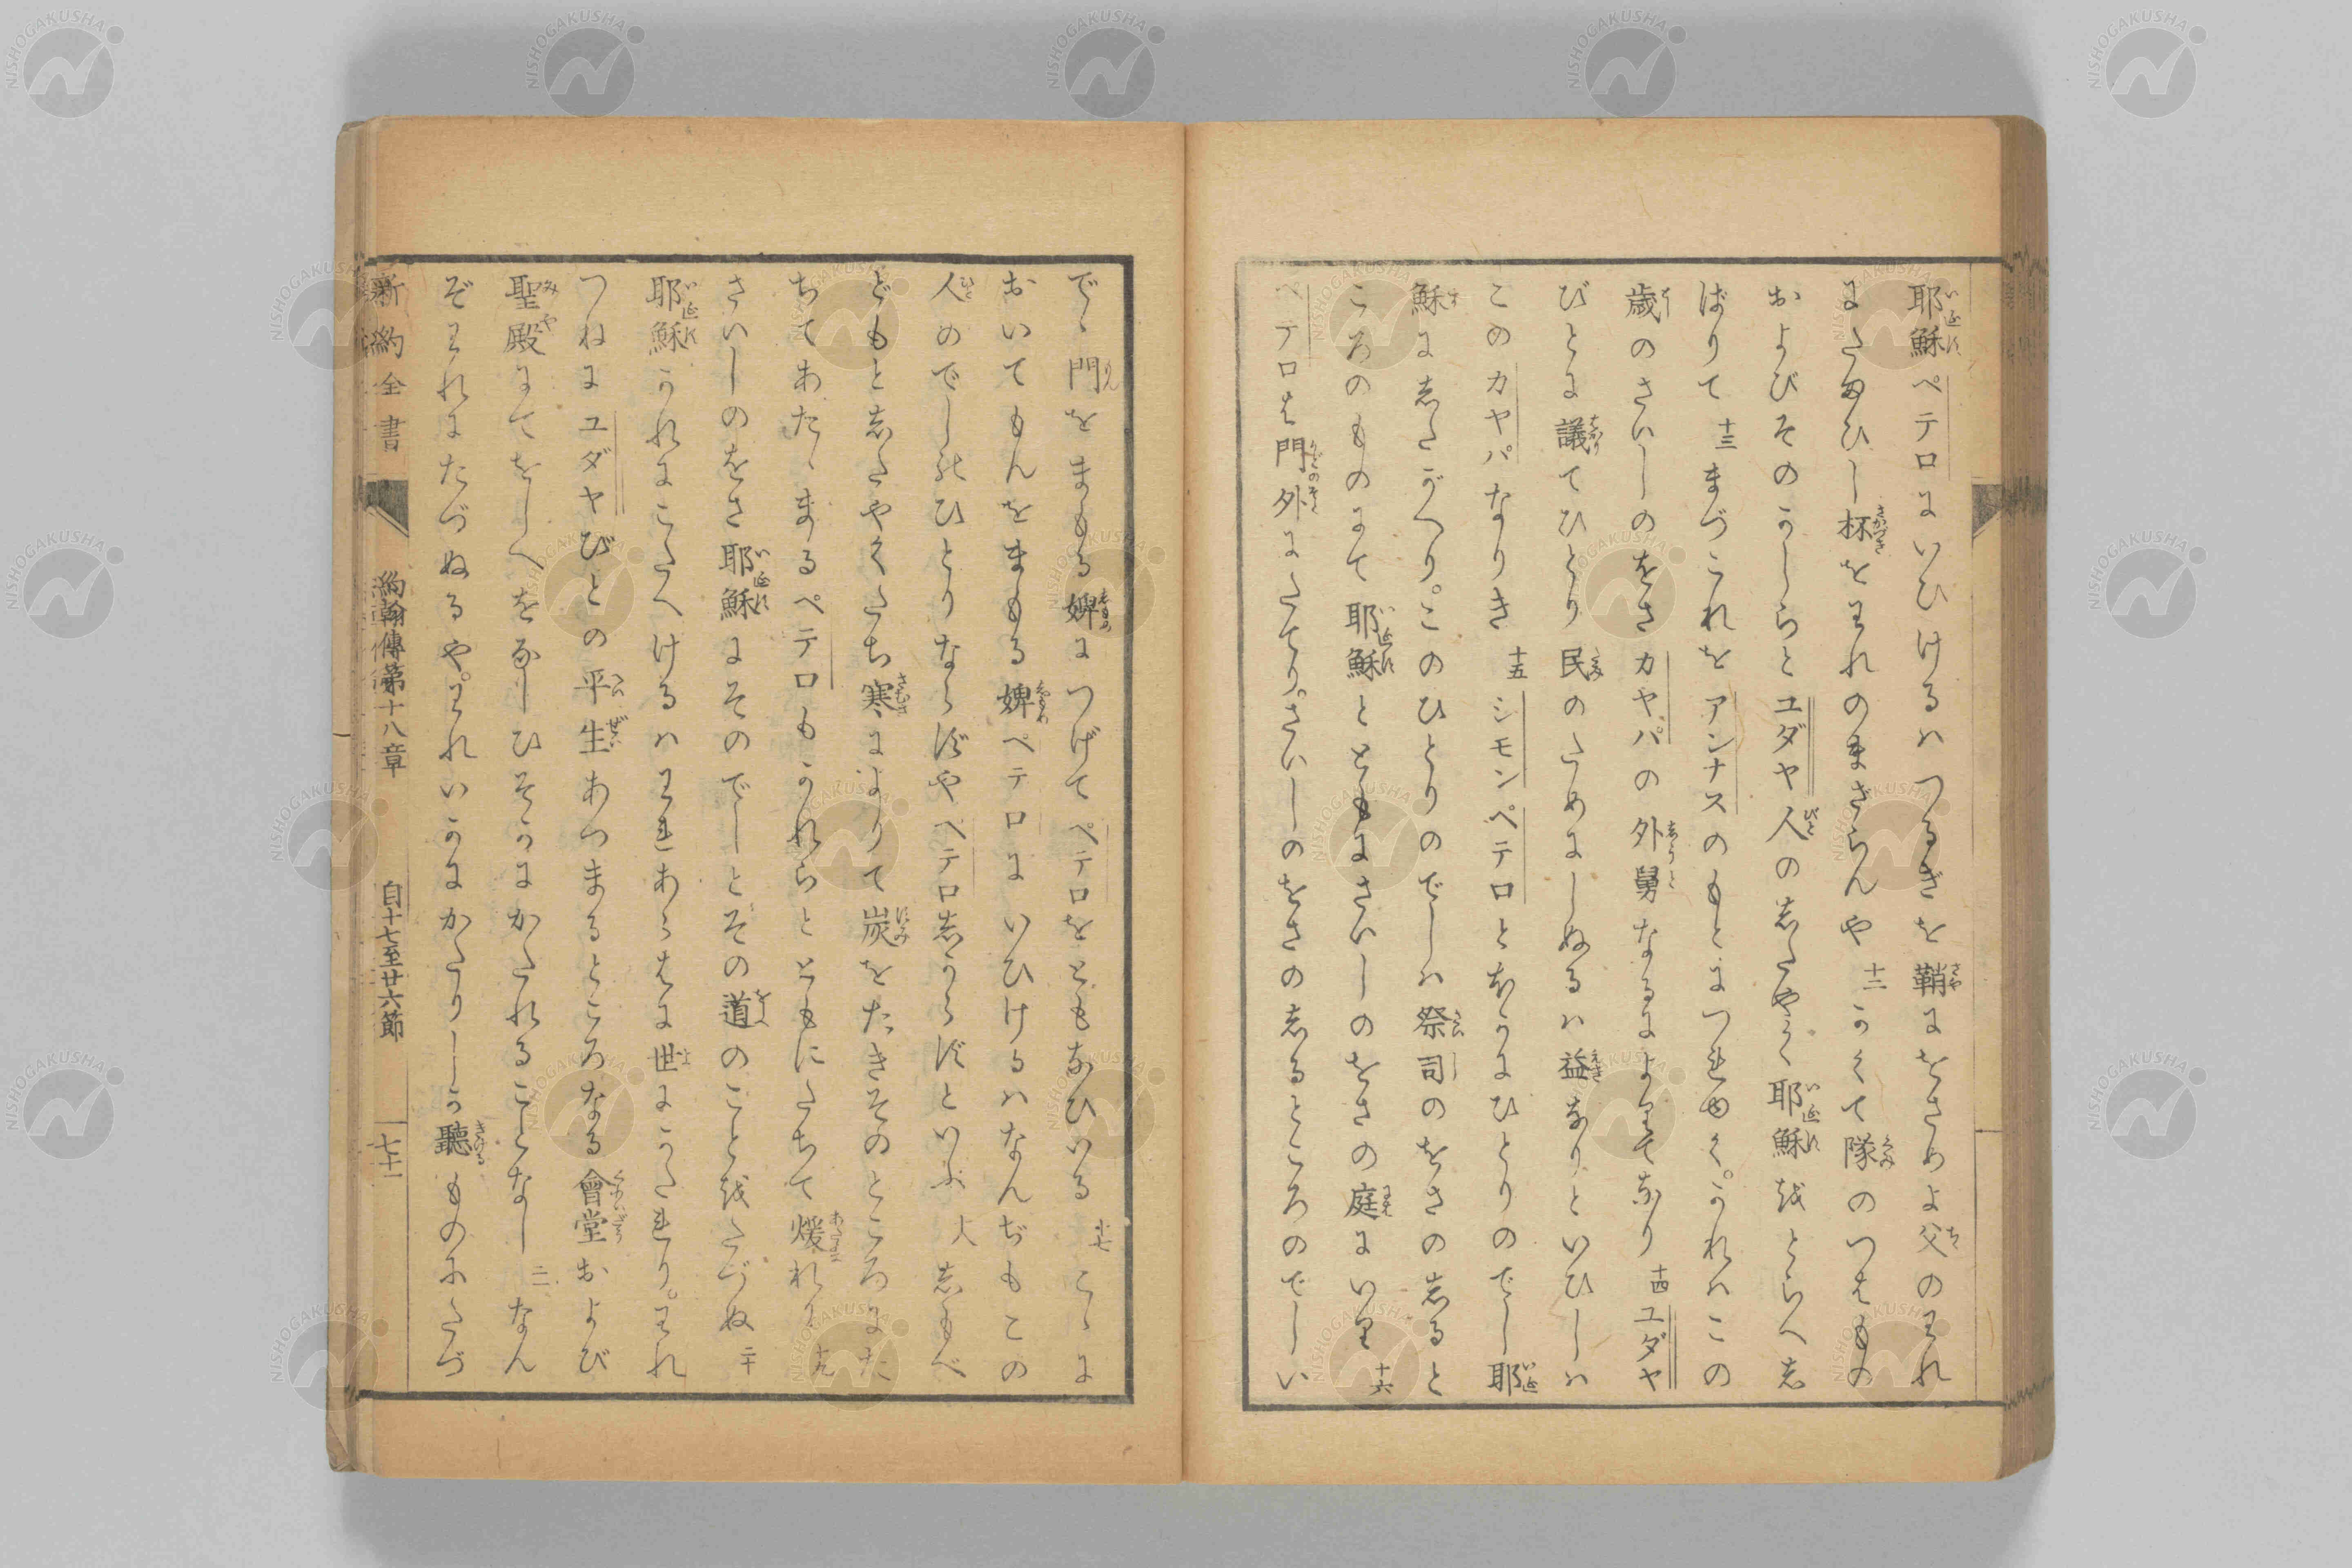 耶穌ペテロにいひけるハつるぎを鞘にをさめよ父のわれ
にたまひし杯をわれのまざらんや 十二 かくて隊のつはもの
およびそのかしらとユダヤ人の志たやく耶穌をとらへ志
ばりて 十三 まづこれをアンナスのもとにつれゆく。かれハこの
歳のさいしのをさカヤパの外舅なるによりてなり 十四 ユダヤ
びとに議てひとり民のためにしぬるハ益なりといひしハ
このカヤパなりき 十五 シモンペテロとほかにひとりのでし耶
穌に志たがへり。このひとりのでしハ祭司のをさの志ると
ころのものにて耶穌とともにさいしのをさの庭にいり 十六
ペテロは門外にたてり。さいしのをさの志るところのでしい
でゝ門をまもる婢につげてペテロをともなひいる 十七 こゝに
おいてもんをまもる婢ペテロにいひけるハなんぢもこの
人のでしのひとりならずやペテロ志からずといふ 十八 志もべ
どもと志たやくたち寒によりて炭をたきそのところにた
ちてあたゝまるペテロもかれらとともにたちて煖れり 十九
さいしのをさ耶穌にそのでしとその道のことをたづぬ 二十
耶穌かれにこたへけるハわれあらはに世にかたれり。われ
つねにユダヤびとの平生あつまるところなる會堂および
聖殿にてをしへをなしひそかにかたれることなし 二一 なん
ぞわれにたづぬるや。われいかにかたりしか聽ものにたづ
新約全書 約翰傳第十八章 自十七至廿六節 七十一